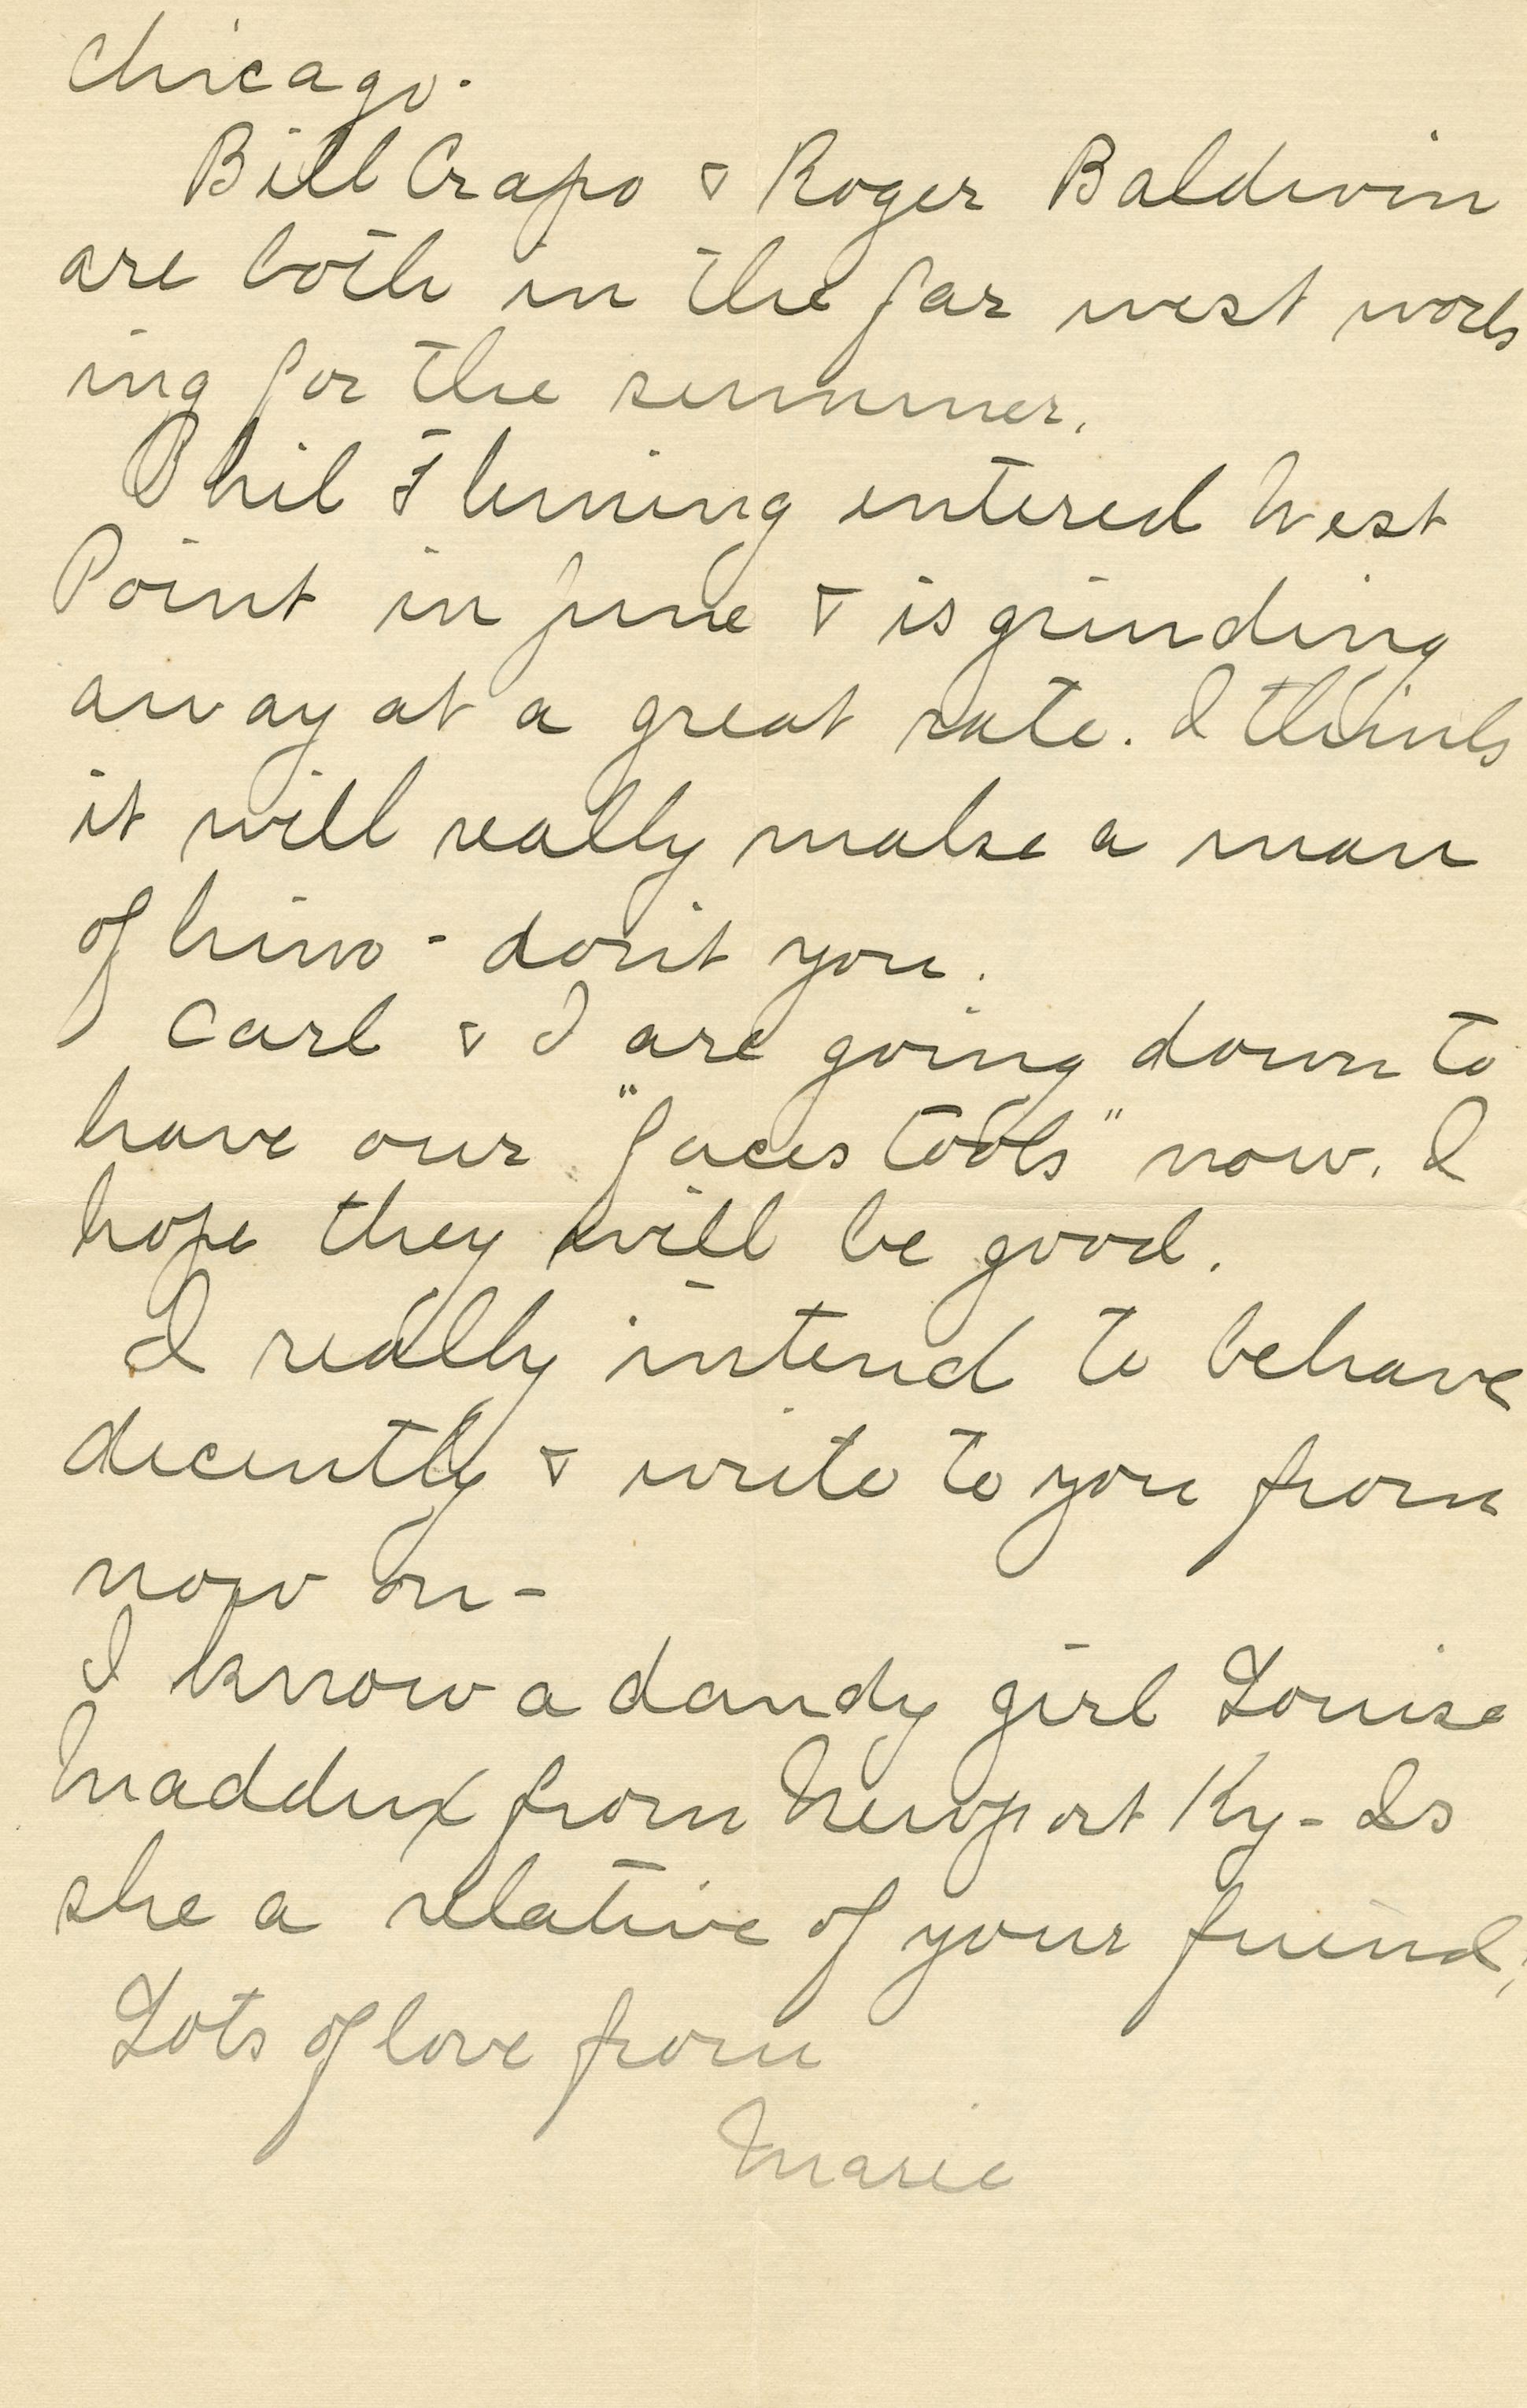 Chicago.
Bill Crapo & Roger Baldwin
are both in the far west work
ing for the summer.
Phil Fleming entered West
Point in June & is grinding
away at a great rate. I think
it will really make a man
of him - don't you.
Carl & I are going down to
have our "faces took" now. I
hope they will be good.
I really intend to behave
decently & write to you from
now on -
I know a dandy girl Louise
Maddux from Newport Ky - Is
she a relative of your friend?
Lots of love from
Marie